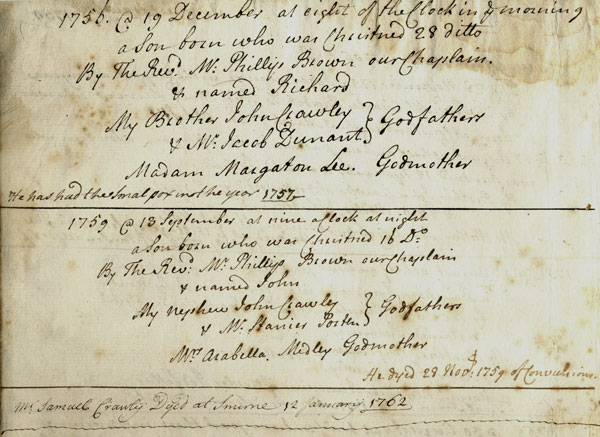 1756. @ 19 December at eight of the Clock in ye morning
a Son born who was Christned 28 ditto
By The Revd. Mr. Phillips Brown our Chaplain.
& named Richard
My Brother John Crawley } Godfathers
& Mr. Jacob Dunant
Madam Margaton Lee. Godmother
He has had the Smal pox in the year 1757
1759 @ 13 September at nine aClock at night
a Son born who was Christned 16 Do.
By The Revd. Mr. Phillips Brown our Chaplain
& named John
My nephew John Crawley } Godfathers
& Mr. Stanier Porten
Mrs Arabella Medley Godmother
He dyed 28 Novr. 1759 of Convulsions.
Mr. Samuell Crawley Dyed at Smirne 12 January 1762